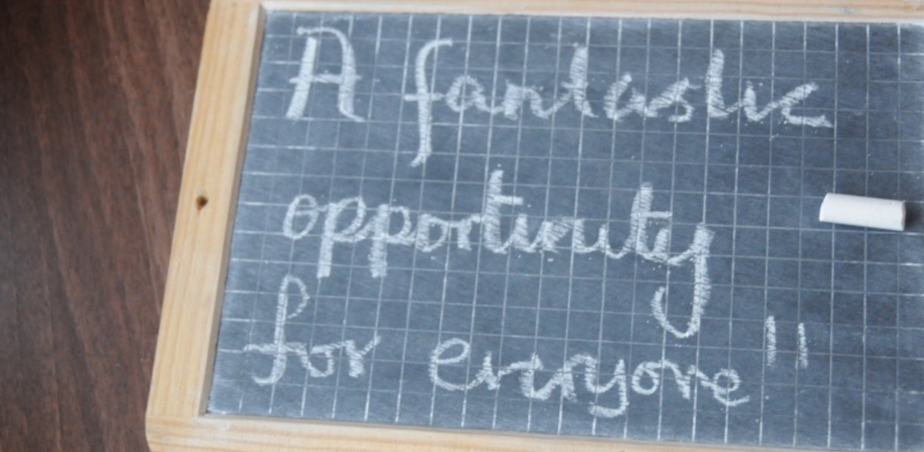 A fantastic
opportunity
for everyone"